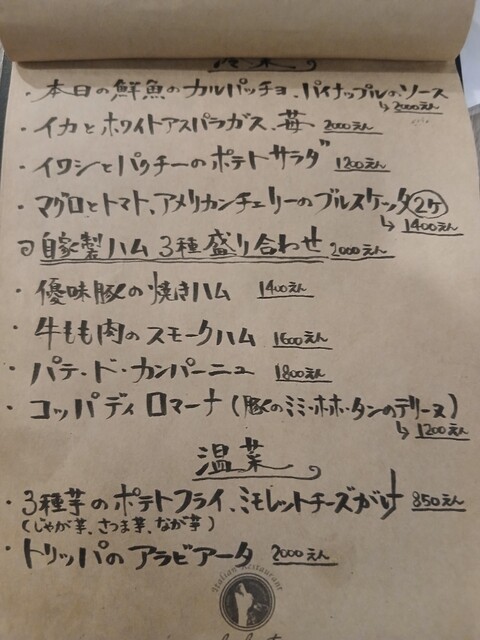 冷菜
・本日の鮮魚のカルパッチョ、パイナップルのソース
↳2000えん
・イカとホワイトアスパラガス、苺 2000えん
・イワシとパクチーのポテトサラダ 1200えん
・マグロとトマト、アメリカンチェリーのブルスケッタ②ケ
↳1400えん
自家製ハム 3種盛り合わせ 2000えん
・優味豚の焼きハム 1400えん
・牛もも肉のスモークハム 1600えん
・パテ・ド・カンパーニュ 1800えん
・コッパディロマーナ(豚のミミ・ホホ・タンのテリーヌ)
↳1200えん
温菜
・3種芋のポテトフライ、ミモレットチーズがけ 850えん
(じゃが芋、さつま芋、なが芋)
・トリッパのアラビアータ 2000えん
Italian Restaurant